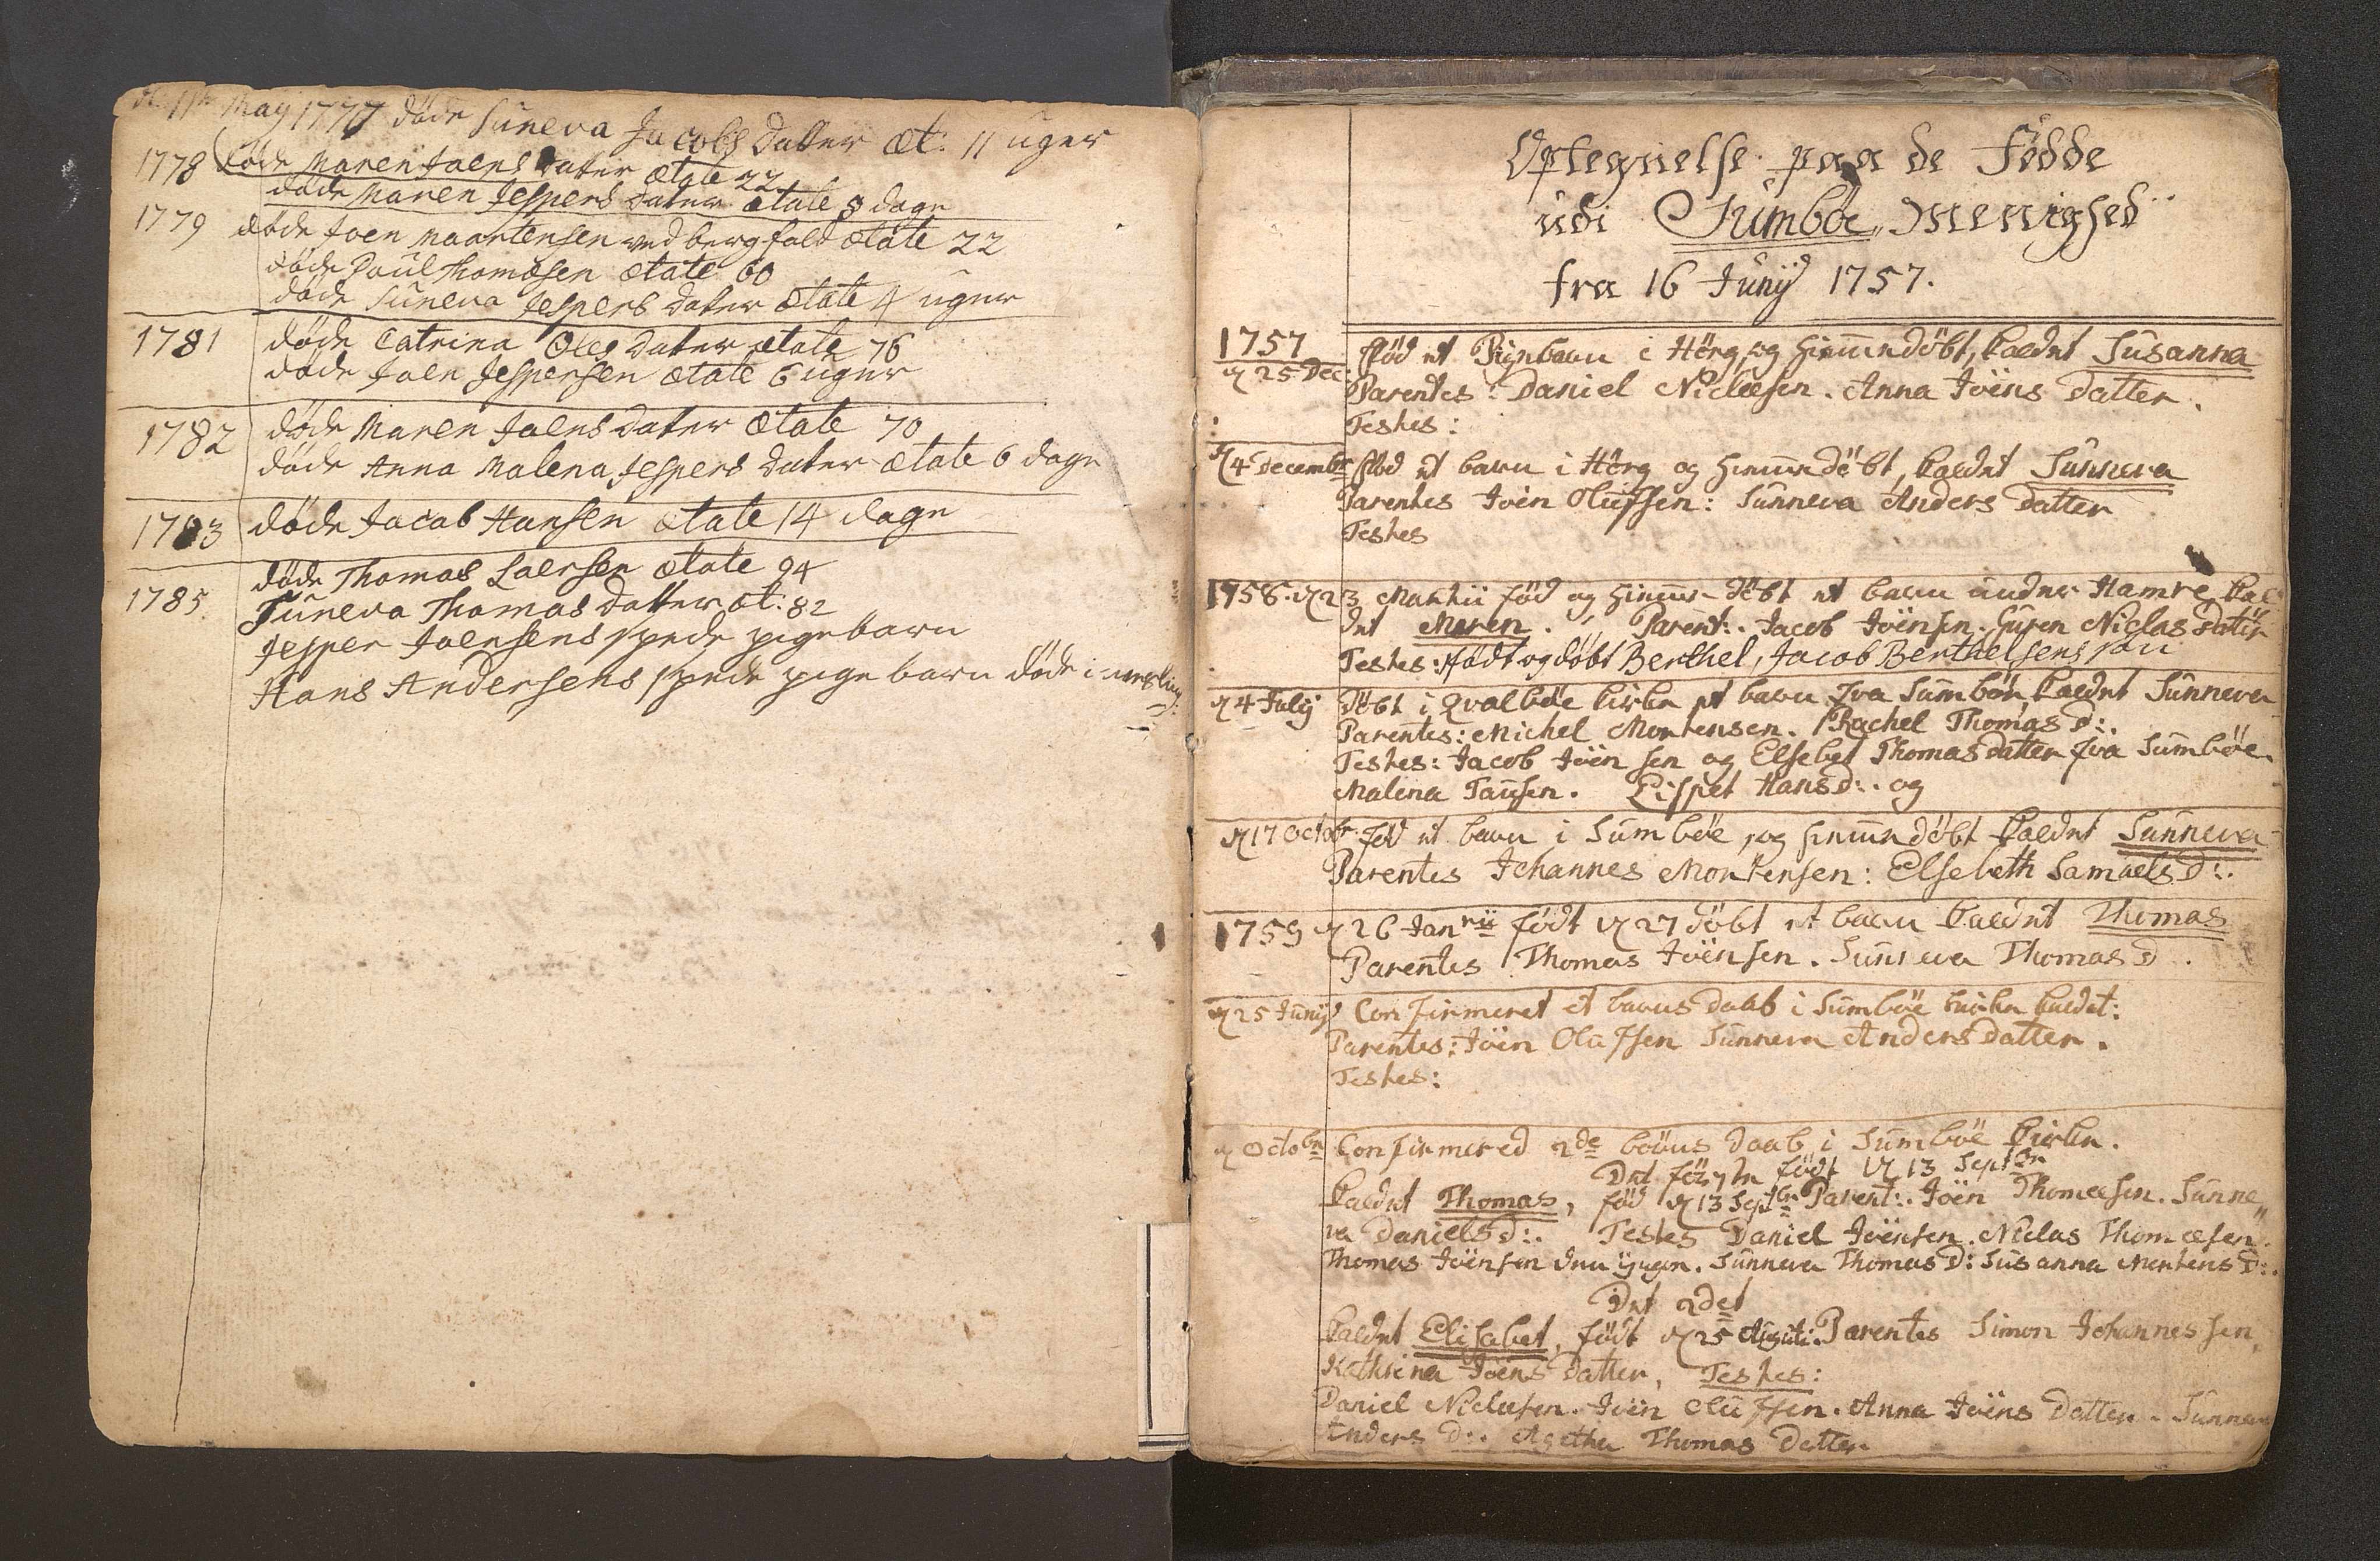 d. 11te May 1777 döde Süneva Jacobs datter æt: 11 uger
1778 döde Maren Joens dater ætate 22
döde Maren Jespers dater ætate 8 dage
1779 döde Joen Maartensen ved bergfald ætate 22
döde Poul Thomæsen ætate 60
döde Süneva Jespers dater ætate 4 uger
1781 döde Catrina Oles dater ætate 76
döde Joen Jespersen ætate 6 uger
1782 döde Maren Joens dater ætate 70
döde Anna Malena Jespers dater ætate 6 dage
1783 döde Jacob Hansen ætate 14 dage
döde Thomas Joensen ætate 94
1785 Süneva Thomas datter æt: 82
Jesper Joensens spede pigebarn
Hans Andersens spede pige barn döde i
Optegnelse paa de Födde
udi Sumböe Menighed
fra 16 Junij 1757.
1757 född et Pigebarn i Hörg, og hiemmedöbt, kaldet Susanna
d 25 Dec. Parentes: Daniel Niclæsen. Anna Joëns Datter.
Testes:
d 4 Decembr född et barn i Hörg og hiemmedöbt, kaldet Sunneva
Parentes Joën Oluffsen: Sunneva Anders Datter
Testes
1758. d 23 Martii född og hiemmedöbt et barn under Hamre kal-
det Maren. Parent:. Jacob Joënsen. Guren Niclas datter
Testes: födt og döbt Berthel, Jacob Berthelsens sön
d 4 Julij Döbt i Qvalböe kirke et barn fra Sumböe, kaldet Sunneva
Parentes: Michel Mortensen. Rachel Thomas D:.
Testes: Jacob Joënsen og Elsebet Thomasdatter fra Sumböe.
Malena Tausen. Lispet Hans D:. og
d 17 Octobr född et barn i Sumböe, og hiemmedöbt kaldet Sunneva
Parentes Johannes Mortensen: Elsebeth Samuels D:.
1759 d 26 Janrii födt d 27 döbt et barn kaldet Thomas
Parentes Thomas Joënsen. Sunneva Thomas D.
d 25 Junij Confirmeret et barns daab i Sumböe kirke kaldet:
Parentes: Joën Oluffsen Sunneva Anders Datter.
Testes:
d Octobr Confirmered 2de börns daab i Sumböe kirke.
Det förste födt d 13 Septbr
kaldet Thomas, föd d 13 Septbr Parent:. Joën Thomæsen. Sunne„
va Daniels D:. Testes Daniel Joënsen. Niclas Thomæsen.
Thomas Joënsen den yngre. Sunneva Thomas D: Susanna Mortens D:.
Det 2det
kaldet Elisabet, födt d 25 Augusti. Parentes Simon Johannessen,
Kathrina Joëns Datter, Testes:
Daniel Niclæsen. Joën Oluffsen. Anna Joëns Datter. Sunneva
Anders D:. Agetha Thomas Datter